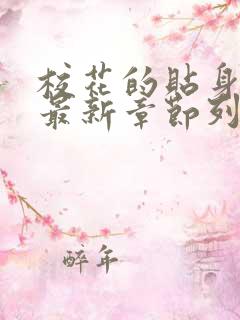 校花的贴身
最新章节列
醉年